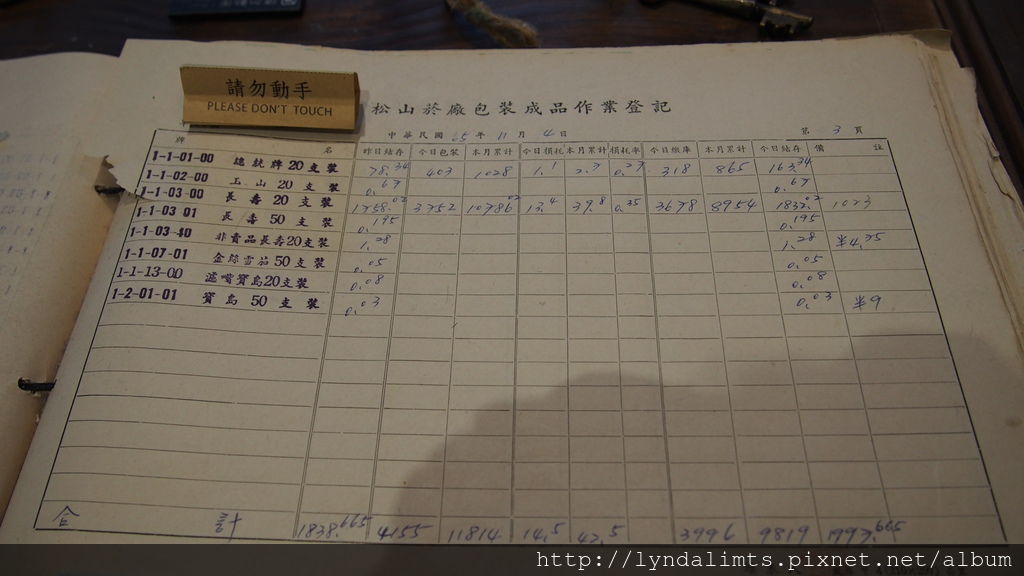 請勿動手
PLEASE DON'T TOUCH
松山菸廠包裝成品作業登記
中華民國65年11月4日 第3頁
牌名 昨日結存 今日包裝 本月累計 今日損耗 本月累計 損耗率 今日繳庫 本月累計 今日結存 備註
1-1-01-00 總統牌20支裝 78.34 403 1028 1.1 2.7 0.27 318 865 163.34
1-1-02-00 玉山20支裝 0.67 0.67
1-1-03-00 長壽20支裝 1758.02 3752 10786.02 13.4 39.8 0.35 3678 8954 1832.02 1023
1-1-03 01 長壽50支裝 0.195 0.195
1-1-03-40 非賣品長壽20支裝 1.28 1.28 半4.25
1-1-07-01 金絲雪茄50支裝 0.05 0.05
1-1-13-00 濾嘴寶島20支裝 0.08 0.08
1-2-01-01 寶島50支裝 0.03 0.03 半9
合計 1838.665 4155 11814 14.5 42.5 3996 9819 1997.665
http://lyndalimts.pixnet.net/album